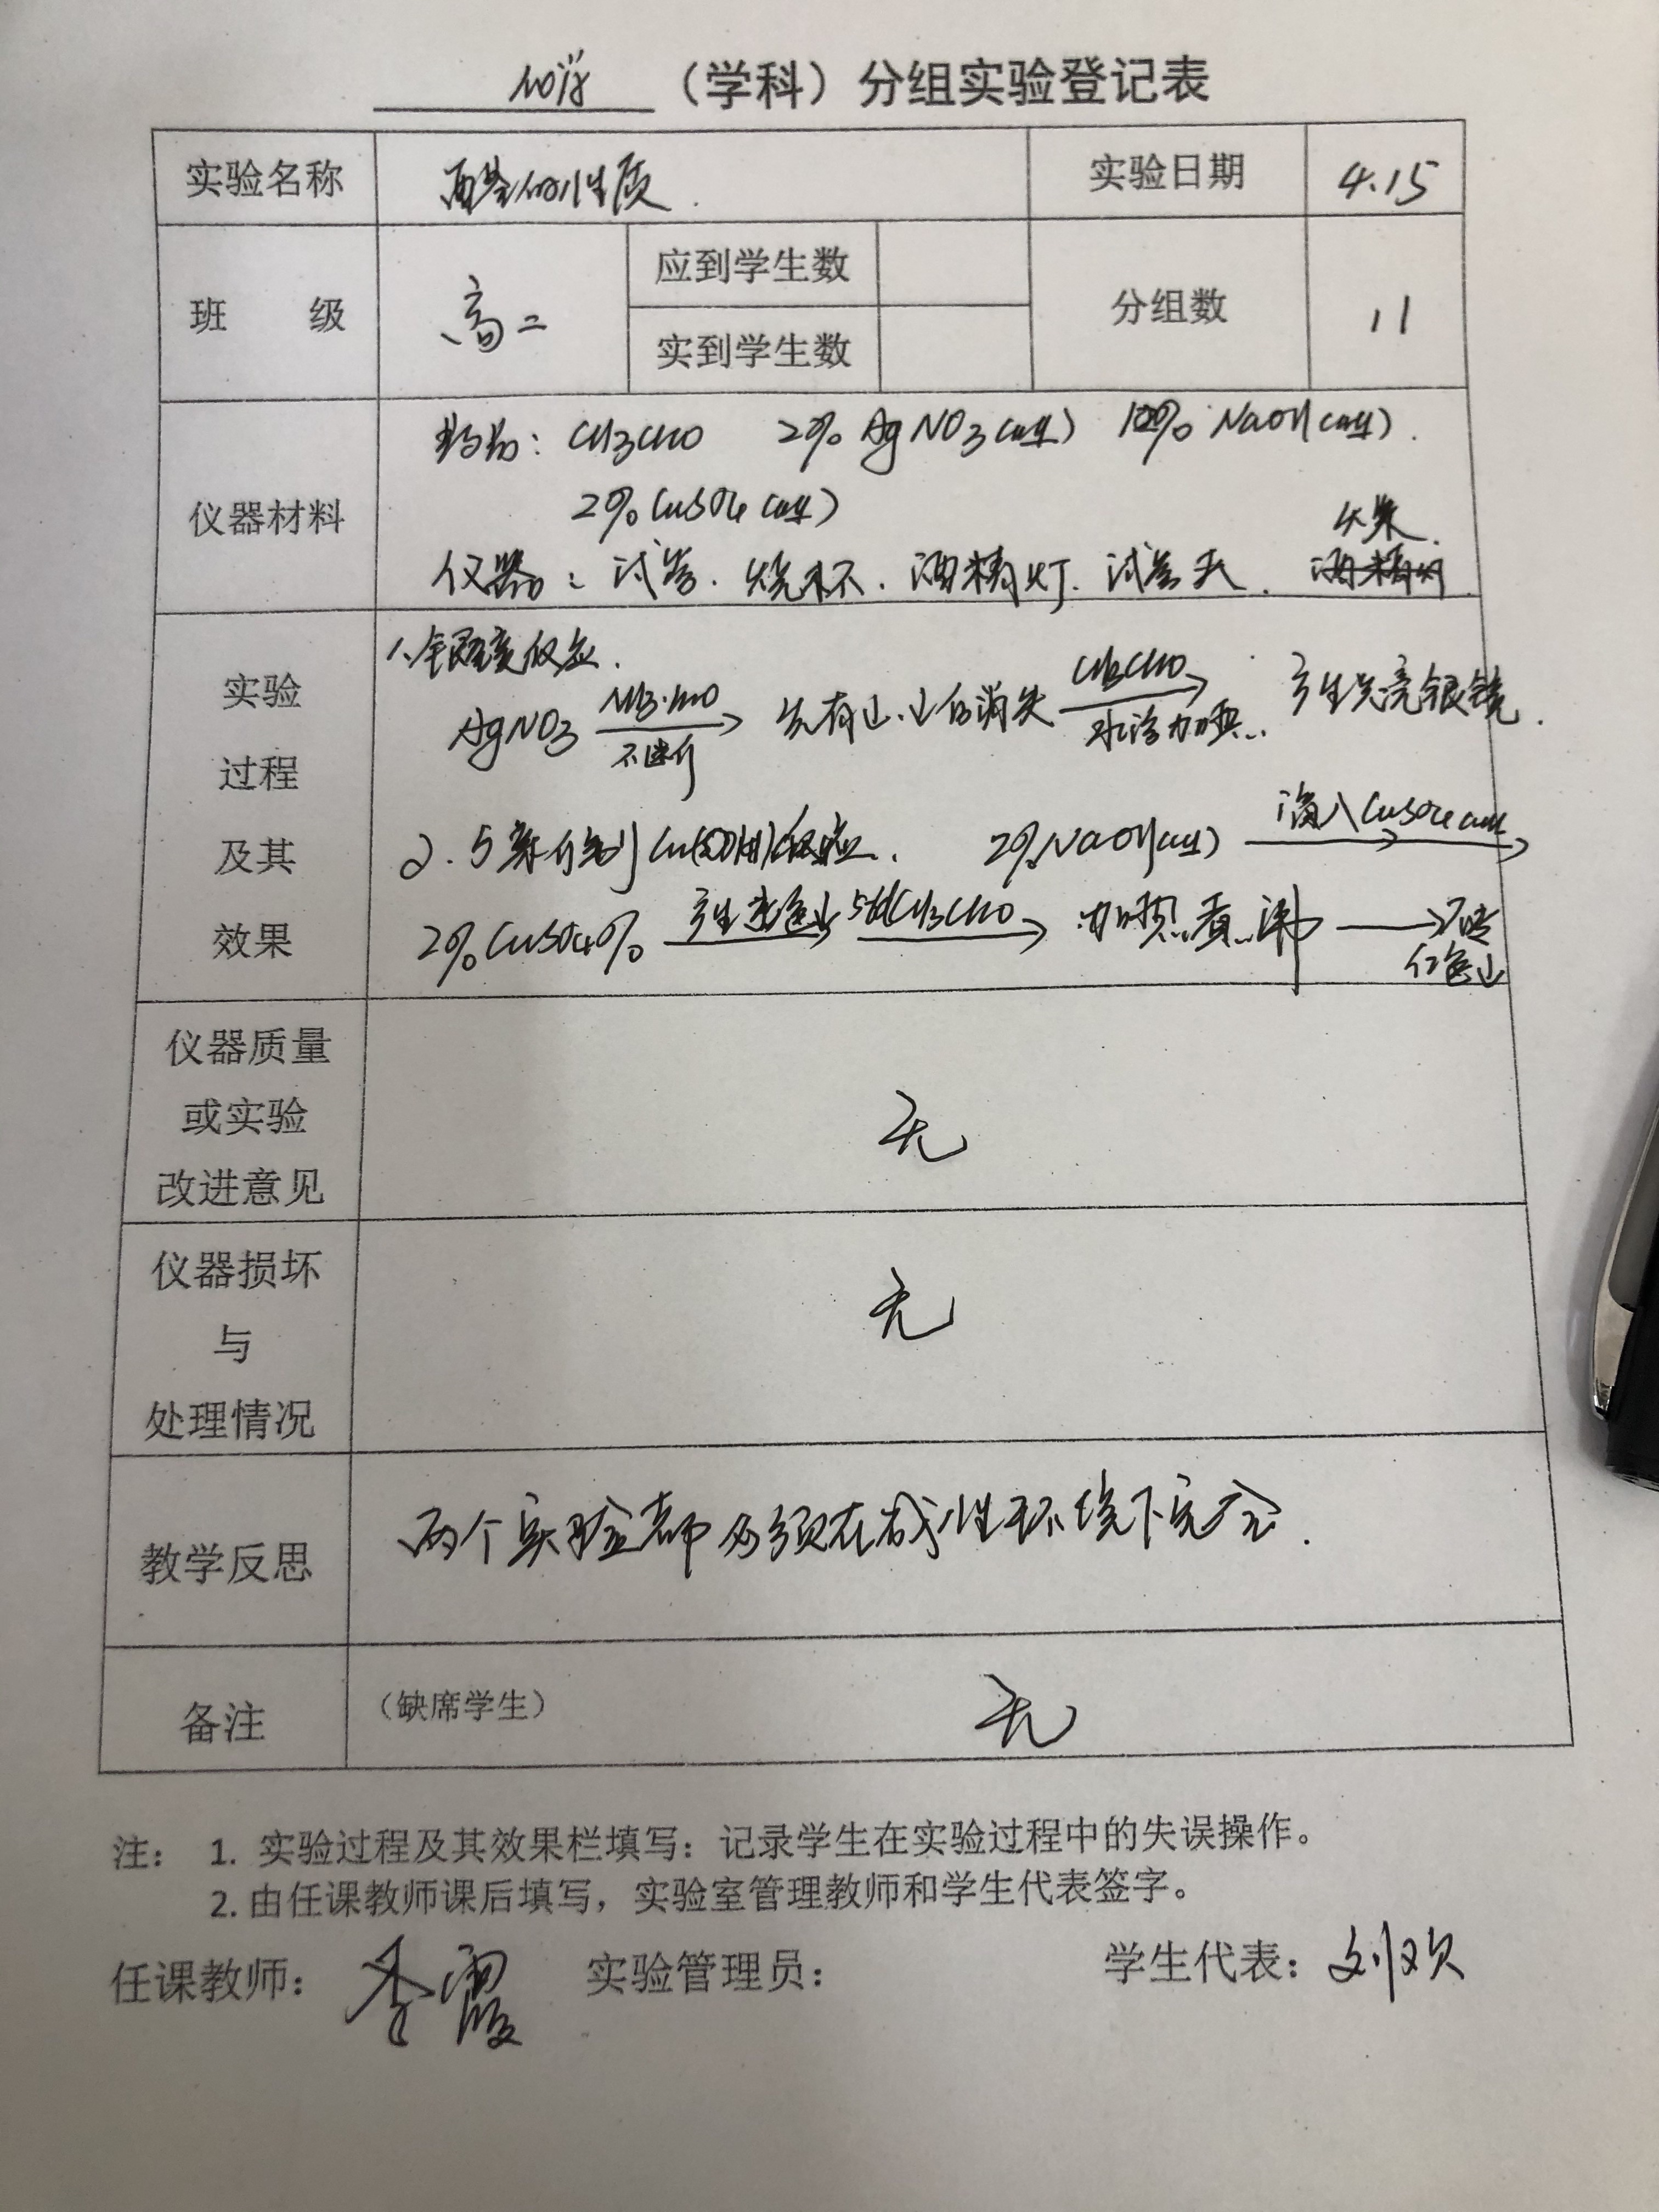 化学 （学科）分组实验登记表
实验名称 醛的性质. 实验日期 4.15
班 级 高二 应到学生数 分组数 11
实到学生数
仪器材料 药品：CH3CHO 2% AgNO3(aq) 10% NaOH(aq).
2% CuSO4(aq)
仪器：试管. 烧杯. 酒精灯. 试管夹. 火柴.
实验过程及其效果
1、银镜反应.
AgNO3 NH3·H2O 不断 先有↓.↓后消失 CH3CHO 水浴加热.. 产生光亮银镜.
2.与新制 Cu(OH)2反应. 2% NaOH(aq) 滴入CuSO4(aq)
2% CuSO4 产生蓝色↓ 5d CH3CHO 加热煮沸 → 砖
红色↓
仪器质量
或实验
改进意见 无
仪器损坏
与
处理情况 无
教学反思 两个实验都必须在碱性环境下完全.
备注 （缺席学生） 无
注： 1. 实验过程及其效果栏填写：记录学生在实验过程中的失误操作。
2. 由任课教师课后填写，实验室管理教师和学生代表签字。
任课教师： 李霞 实验管理员： 学生代表：刘欢